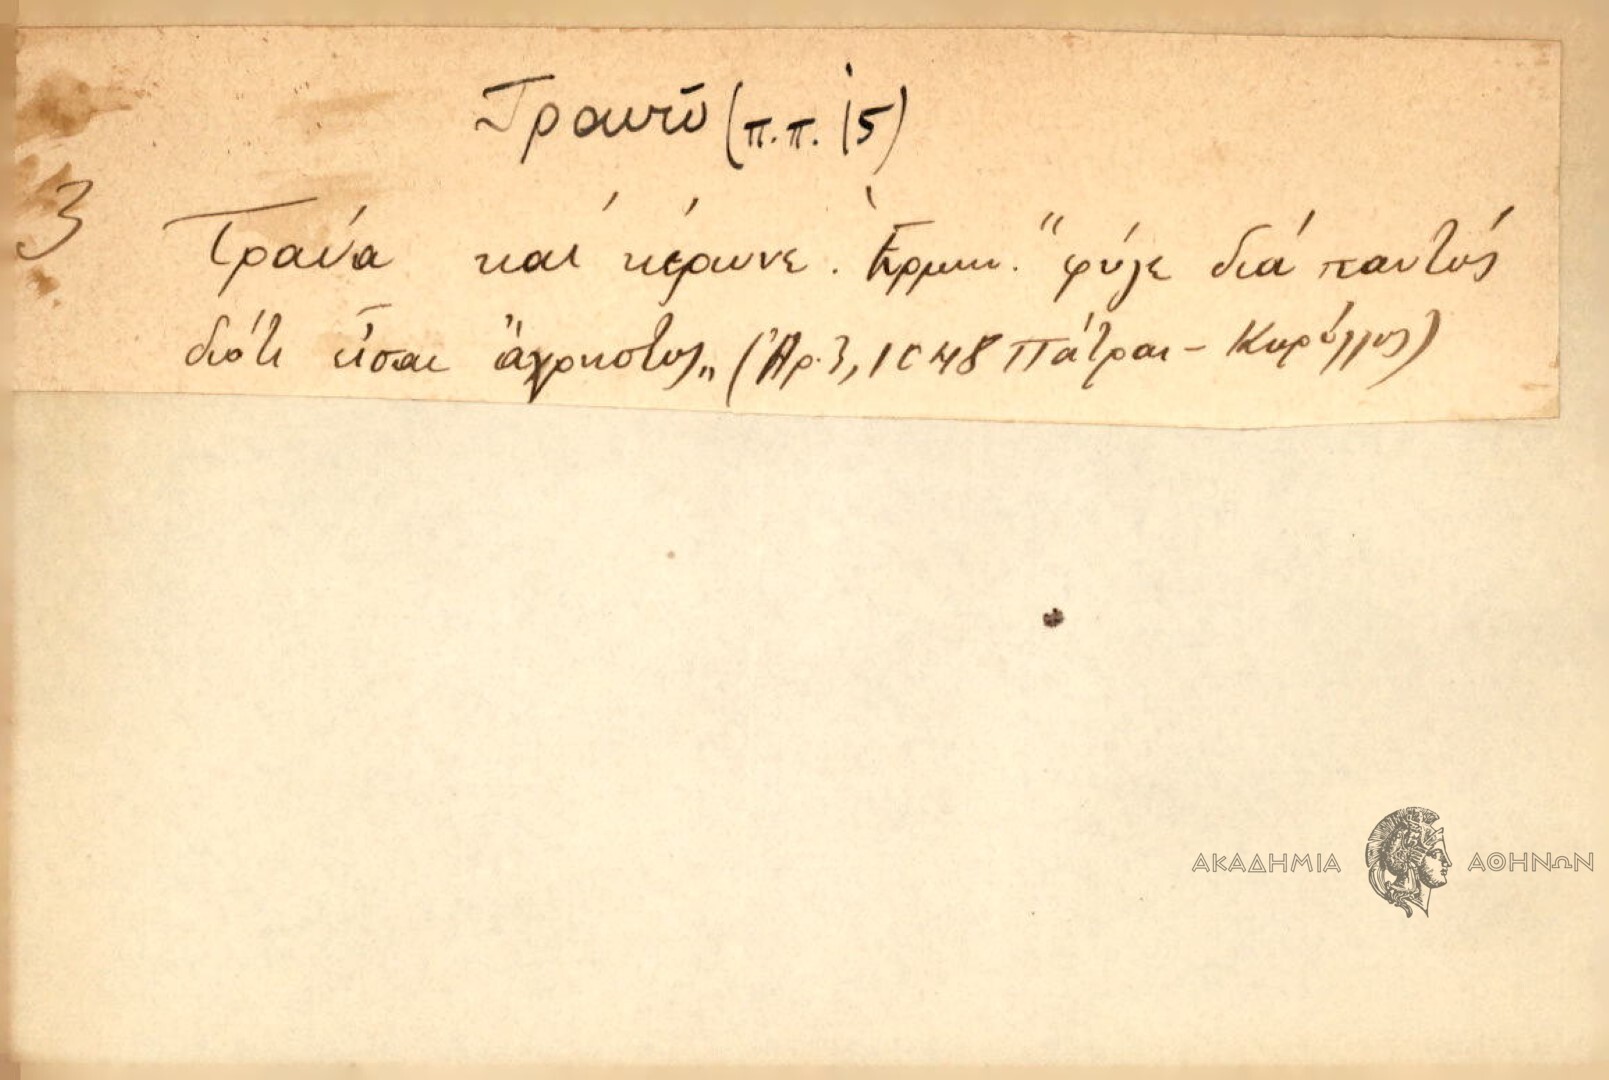 Τραυῶ (π.π. 15)
3 Τραύα καί κέρωνε. Ἑρμην. "φύγε διά παντός
διότι εἶσαι ἄχρηστος„ (Ἀρ. 3, 1048 Πάτραι -
ΑΚΑΔΗΜΙΑ ΑΘΗΝΩΝ